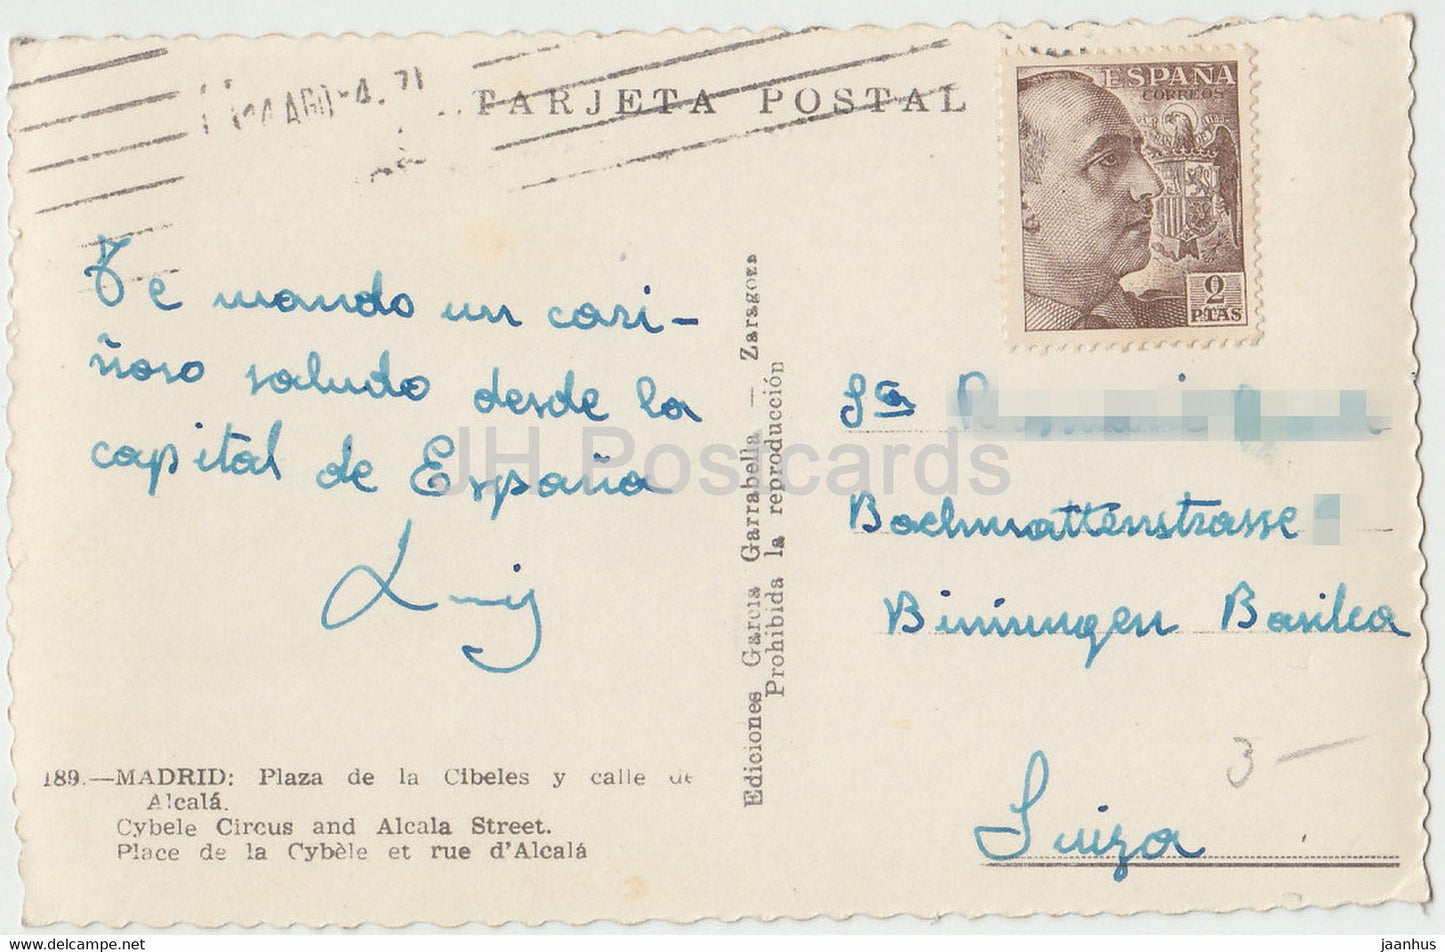 TARJETA POSTAL
ESPAÑA
CORREOS
2
PTAS
Te mando un cari-
ñoso saludo desde la
capital de España
Luis
Ediciones García Garrabella — Zaragoza
Prohibida la reproducción
Sta
Bachmattenstrasse
Binningen Basilea
Suiza
3 —
189.—MADRID: Plaza de la Cibeles y calle de
Alcalá.
Cybele Circus and Alcala Street.
Place de la Cybèle et rue d'Alcalá
JH Postcards
www.jhpostcards.com
jaanhus